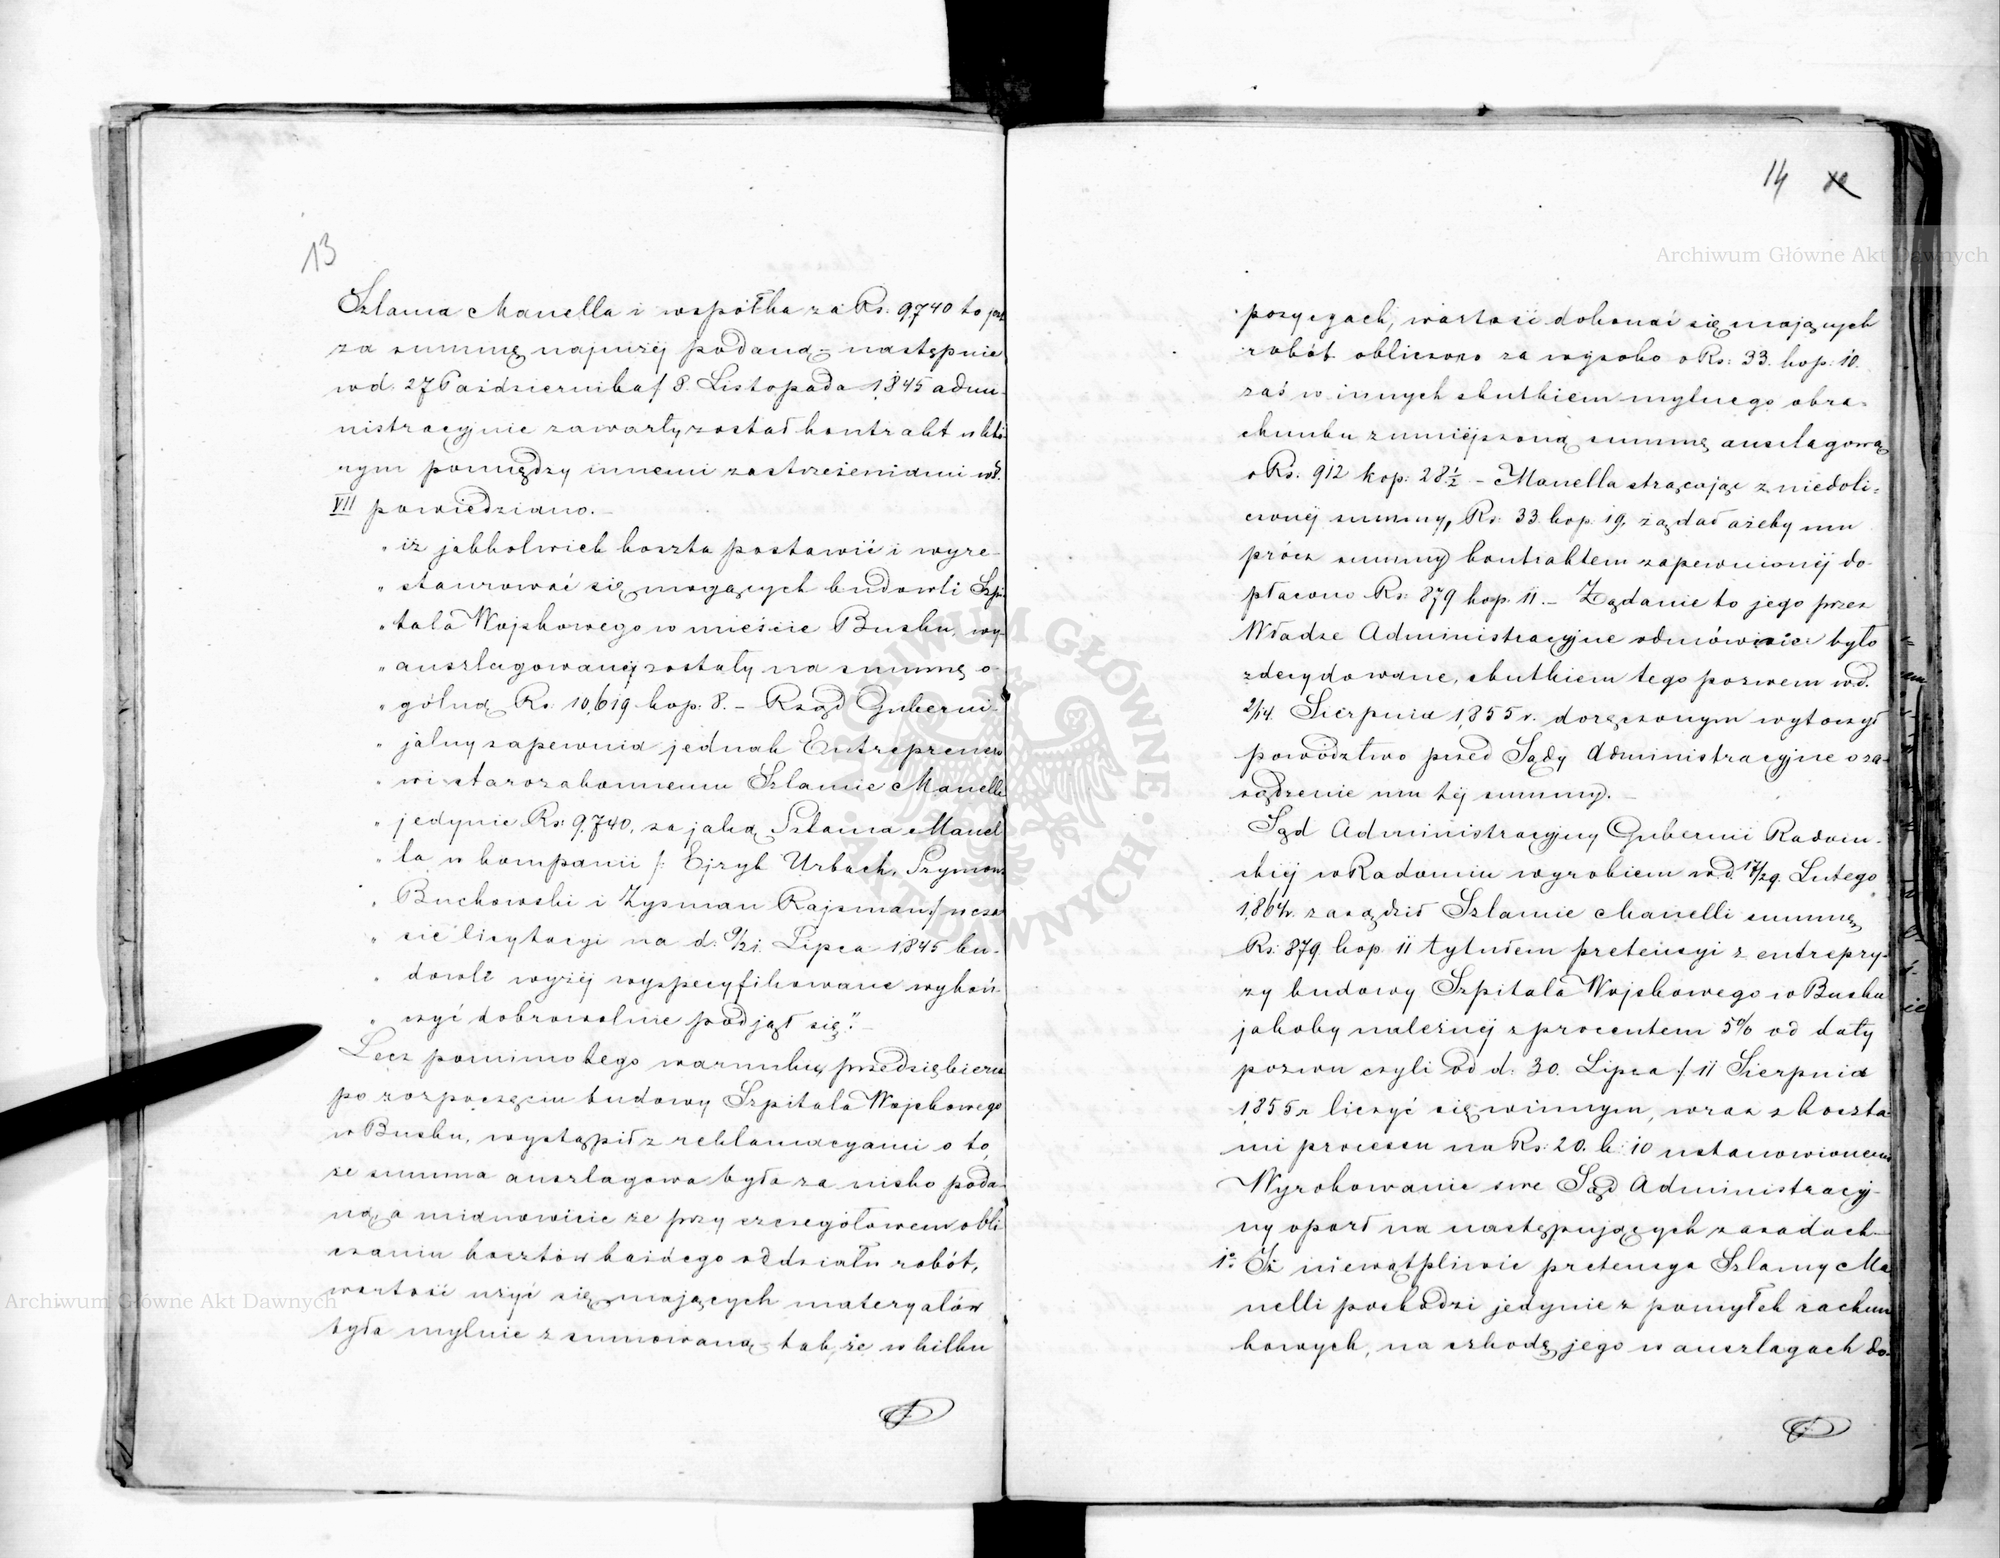 13
Szlama Manella i wspólka za Rs. 9,740 to jest
za summę najniżej podaną – następnie
w d. 27 Października / 8. Listopada 1845 admi-
nistracyjnie zawarty został kontrakt w któ-
rym pomiędzy innemi zastrzeżeniami w §.
VII powiedziano. –
„ iż jakkolwiek koszta postawić i wyre-
„ staurować się mogących budowli Szpi-
„ tala Wojskowego w mieście Busku, wy-
„ anszlagowanej zostały na summę o-
„ gólną Rs. 10,619 kop. 8. – Rząd Guberni-
„ jalny zapewnia jednak Entreprenero-
„ wi starozakonnemu Szlamie Manelli
„ jedynie Rs. 9,740, za jaką Szlama Manel-
„ la w kompanii /: Ejzyk Urbach, Szymon
„ Buchowski i Zysman Rajsman :/ w cza-
„ sie licytacyi na d. 9/21. Lipca 1845 bu-
„ dowle wyżej wyspecyfikowane wykoń-
„ czyć dobrowolnie podjął się." –
Lecz pomimo tego warunku, przedsiębierca
po rozpoczęciu budowy Szpitala Wojskowego
w Busku, wystąpił z reklamacyami o to,
że summa anszlagowa była za nisko poda-
ną, a mianowicie że przy szczegółowem obli-
czaniu kosztów każdego oddziału robót,
wartość użyć się mających materyałów
była mylnie zsumowaną – tak, że w kilku
14
pozycyach, wartość dokonać się mających
robót obliczono za wysoko o Rs. 33. kop. 10.
zaś w innych skutkiem mylnego obra-
chunku zmniejszoną summę anszlagową
o Rs. 912 kop. 28½ – Manella strącając z niedoli-
czonej summy, Rs. 33. kop. 19. żądał ażeby mu
prócz summy kontraktem zapewnionej do-
płacono Rs. 879 kop. 11. – Żądanie to jego przez
Władze Administracyjne odmównie było
zdecydowane, skutkiem tego pozwem w d.
2/14. Sierpnia 1855 r. doręczonym wytoczył
powództwo przed Sądy Administracyjne o za-
sądzenie mu tej summy. –
Sąd Administracyjny Gubernii Radom-
skiej w Radomiu wyrokiem w d. 17/29. Lutego
1864 r. zasądził Szlamie Manelli summę
Rs. 879 kop. 11 tytułem pretensyi z entrepry-
zy budowy Szpitala Wojskowego w Busku
jakoby należnej z procentem 5% od daty
pozwu czyli od d. 30. Lipca / 11 Sierpnia
1855 r liczyć się winnym, wraz z koszta-
mi procesu na Rs. 20. k. 10 ustanowionemi
Wyrokowanie swe Sąd Administracyj-
ny oparł na następujących zasadach –
1o Iż niewątpliwie pretensya Szlamy Ma-
nelli pochodzi jedynie z pomyłek rachun-
kowych, na szkodę jego w anszlagach do-
Archiwum Główne Akt Dawnych
Archiwum Główne Akt Dawnych
ARCHIWUM GŁÓWNE AKT DAWNYCH